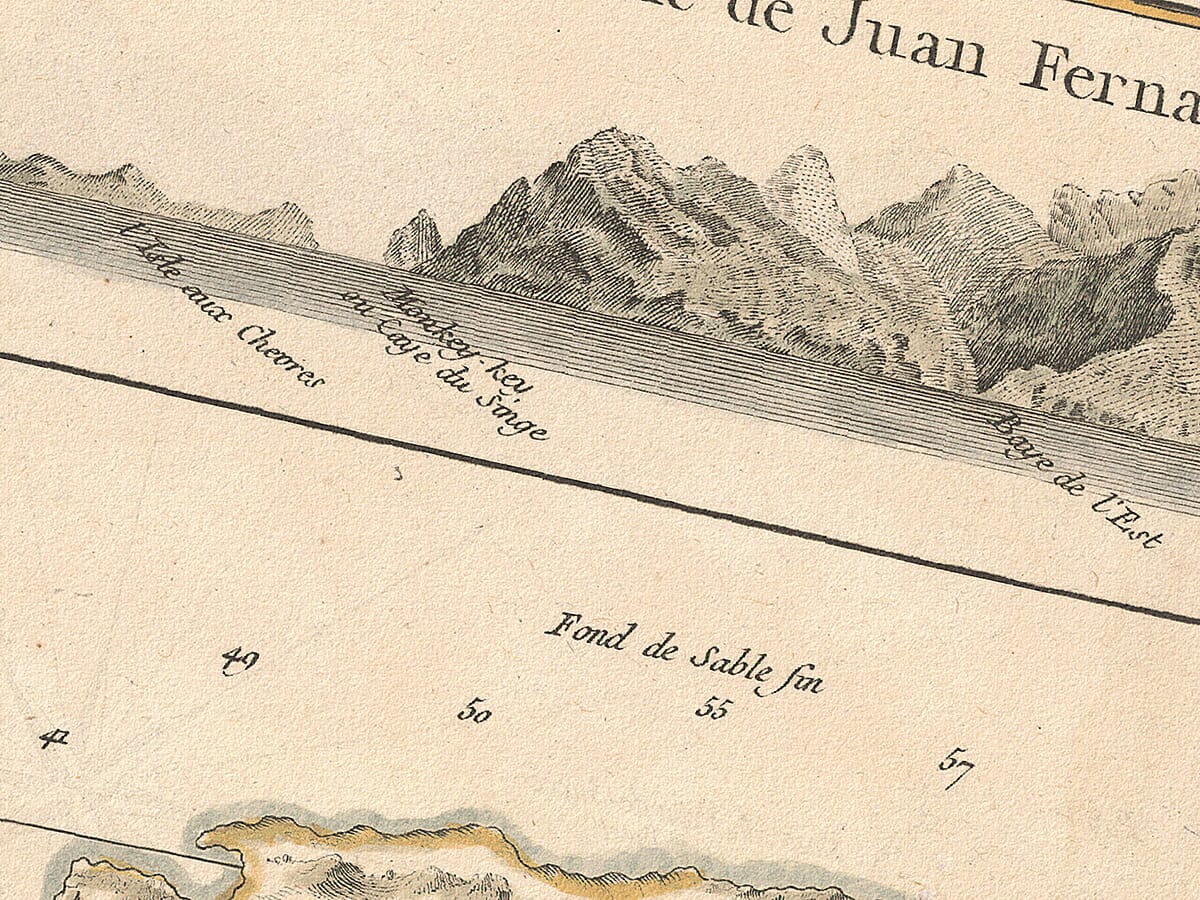 de Juan Ferna
l'Isle aux Chevres
Monkey-key
ou Caye du Singe
Baye de l'Est
Fond de Sable fin
49
50
55
57